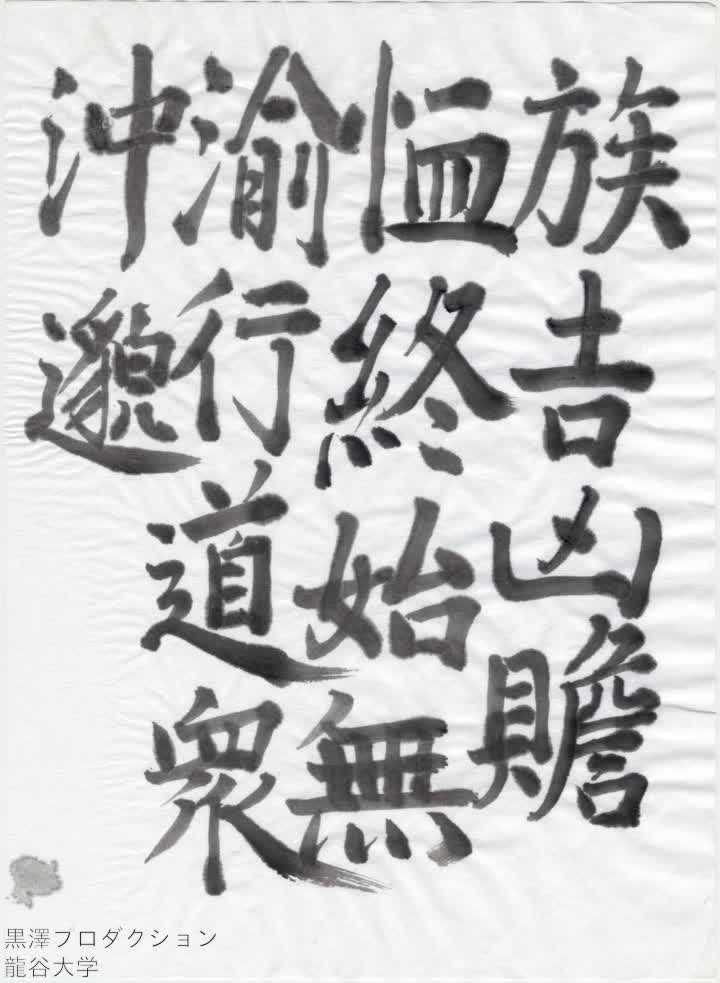 族吉凶贍
恤終始無
渝行道衆
沖邈
黒澤プロダクション
龍谷大学